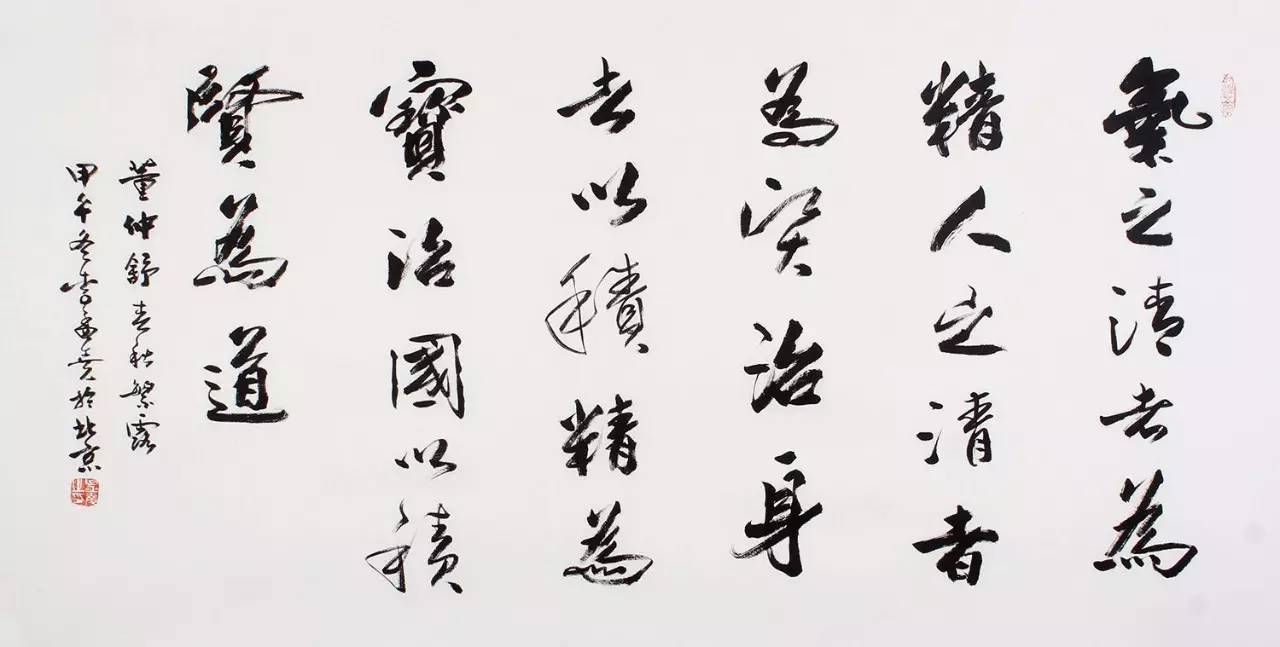 氣之清者為
精人之清者
為賢治身
者以積精為
寶治國以積
賢為道
董仲舒春秋繁露
甲午冬李於北京